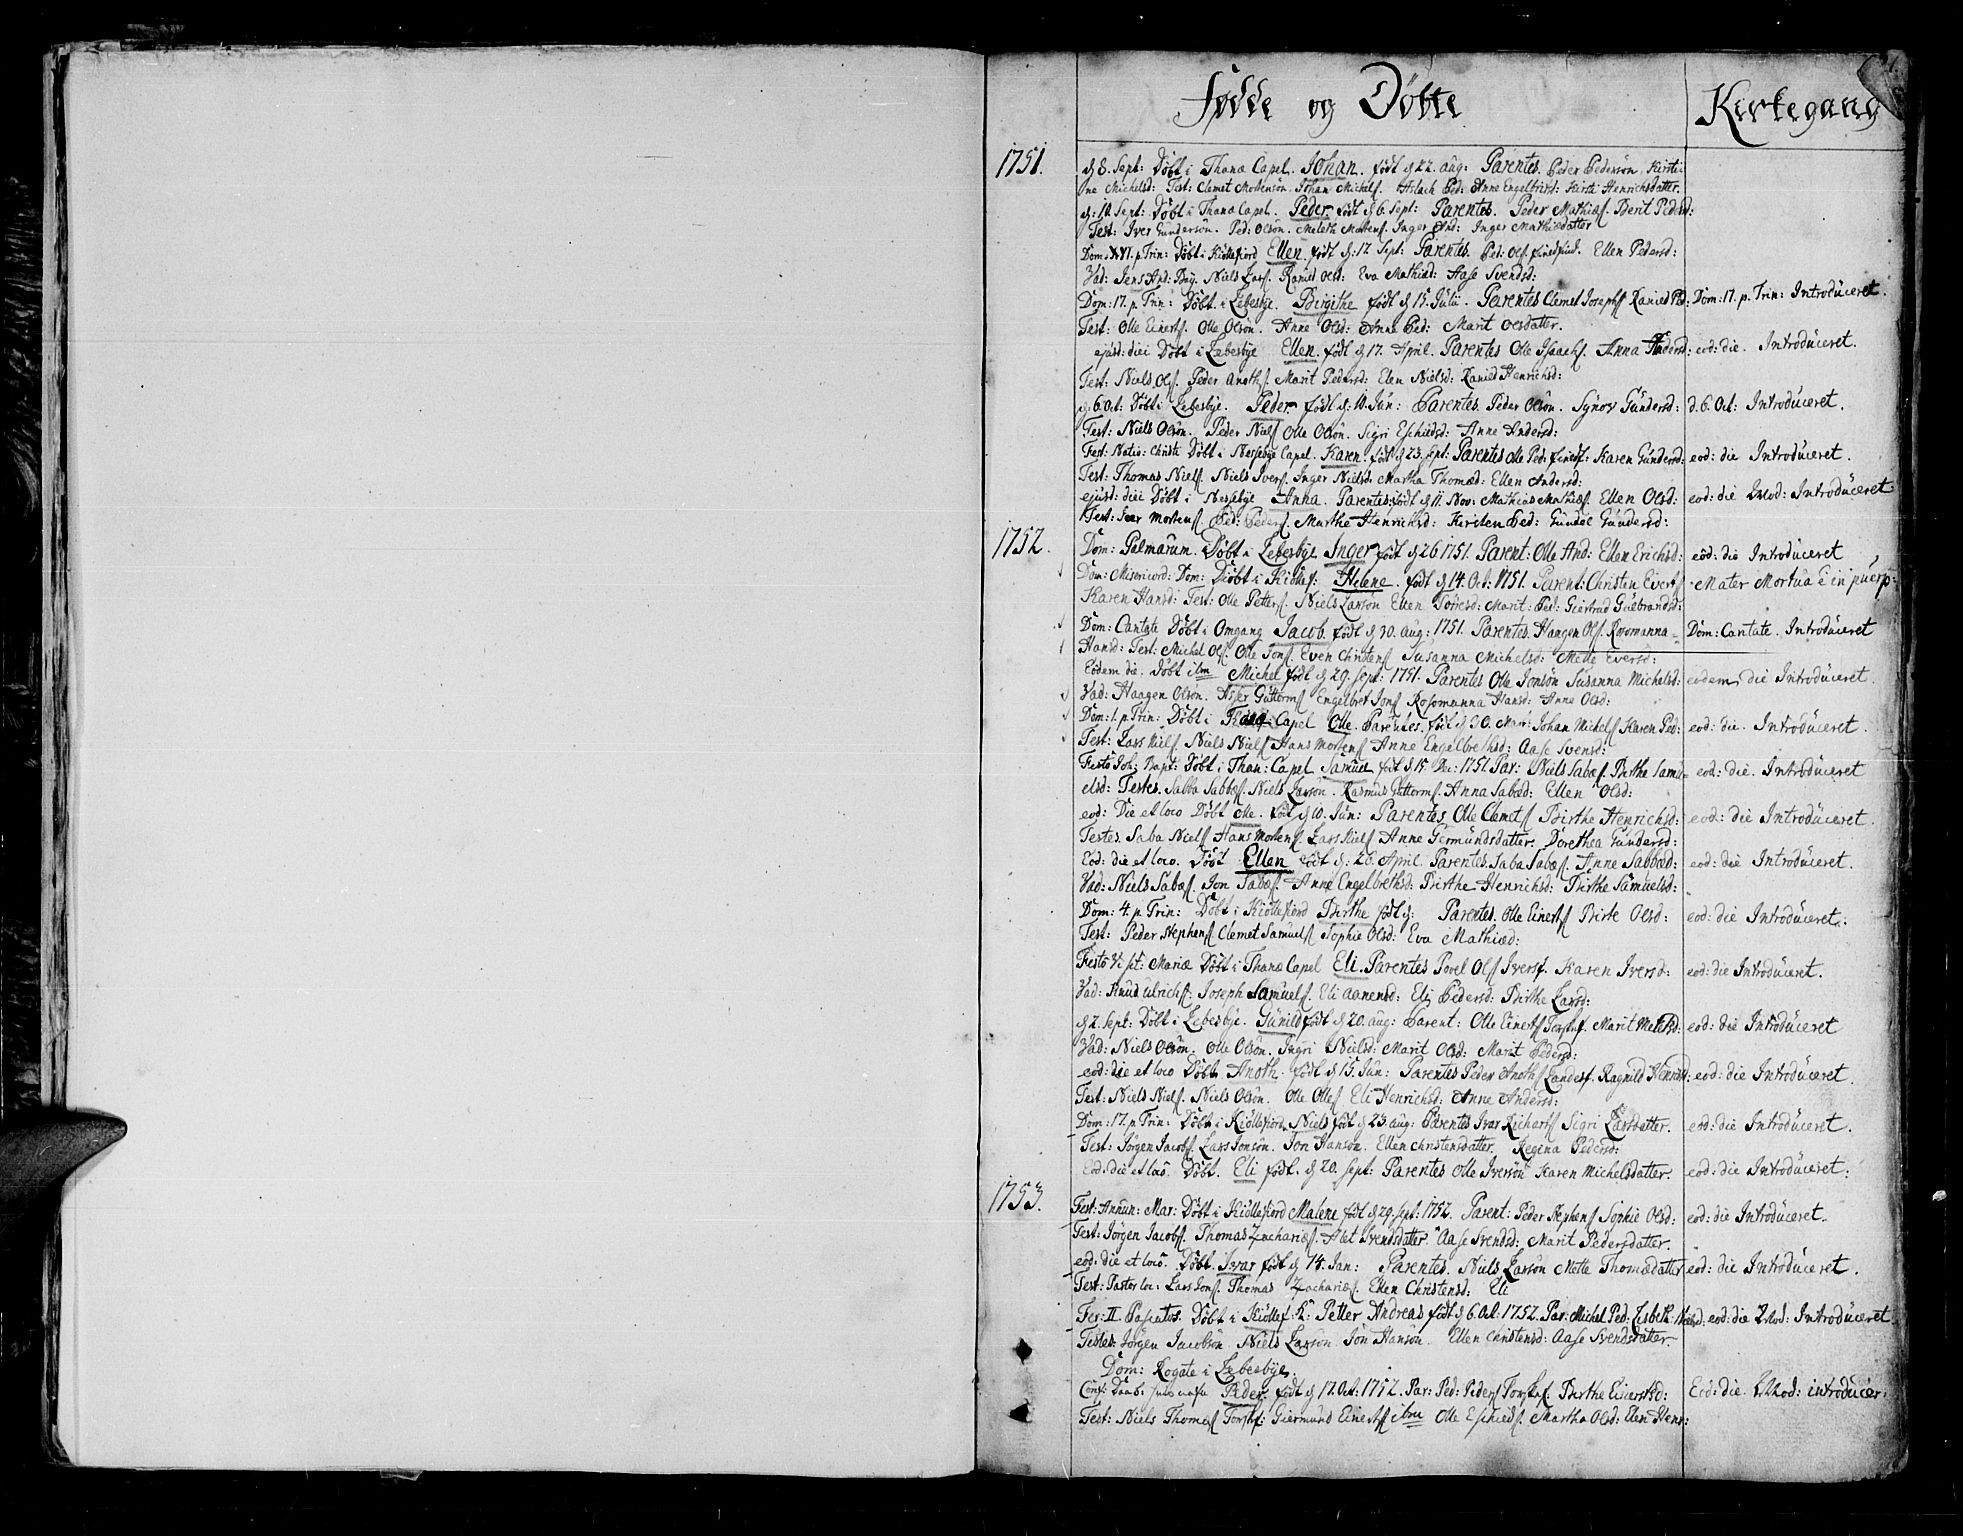 Fødde og Døbte Kirkegang
1751. d. 8. Sept: Døbt i Thanæ Capel. Johan. født d. 22. aug: Parentes. Peder Pedersøn. Kirsti-
ne Michelsd: Test: Clemet Mortensøn. Johan Michels. Aslach Ped: Anne Engelfrird: Kirsti Henrichsdatter.
d: 10. Sept: Døbt i Thanæ Capel. Peder. født d. 6. Sept: Parentes. Peder Mathiæs. Berit Pedersd:
Test: Iver Gundersøn. Ped: Olsøn. Meleth Mortens. Inger And: Inger Mathiædatter
Dom: XVI. p. Trin: Døbt i Kiøllefiord Ellen. født d: 17. Sept: Parentes. Ped: Ols. Ellen Pedersd:
Vad: Jens And: Niels Lars. Ranied Olsd: Eva Mathiæd: Aase Svendsd:
Dom: 17. p. Trin: Døbt i Lebesbye. Birgithe født d 15. Julii. Parentes Clemet Josephs Ranied Ped: Dom: 17. p. Trin: Introduceret.
Test: Olle Einerts. Olle Olsøn. Anne Olsd: Anne Ped: Marit Olsdatter.
ejusd: diei Døbt i Lebesbye Ellen. født d 17. April. Parentes Olle Isaachs. Anna Andersd: eod: die. Introduceret.
Test: Niels Ols. Peder Anoths. Marit Pedersd: Elen Nielsd: Ranied Henrichsd:
d. 6. Oct: Døbt i Lebesbye. Peder. født d: 10. Jun: Parentes. Peder Olsøn. Synov Gundersd: d. 6. Oct: Introduceret.
Test: Niels Olsøn. Peder Niels Olle Olsøn. Sigri Eschildsd: Anne Andersd:
Fest: Nativ: Christi Døbt i Nessebye Capel. Karen. født d 23. Sept: Parentes Olle Ped: Karen Gundersd: eod: die Introduceret.
Test: Thomas Niels. Niels Ivers. Inger Nielsd: Martha Thomæd: Ellen Andersd:
ejusd: diei Døbt i Nessebye Anna. Parentes: født d 11. Nov: Mathias Mathiæs. Ellen Olsd: eod: die Introduceret
Test: Iver Mortens. Ped: Peders. Marthe Henrichsd: Kirsten Ped: Gundel Gundersd:
1752. Dom: Palmarum. Døbt i Lebesbye Inger født d 26 1751. Parent: Olle And: Ellen Erichsd: eod: die Introduceret
Dom: Misericord: Dom: Døbt i Kiøllef: Helene. født d 14. Oct: 1751. Parent: Christen Everts Mater Mortua è in puerp:
Karen Hansd: Test: Olle Petters. Niels Larsøn Ellen Marit: Ped: Giertrud Gulbrandsd:
Dom: Cantate Døbt i Omgang Jacob. født d 30. aug: 1751. Parentes. Haagen Ols. Rosomanna Dom: Cantate. Introduceret
Hansd: Test: Michel Ols. Olle Jons. Even Christens Susanna Michelsd: Mette Eversd:
Eodem die. Døbt ibm Michel født d 29. Sept: 1751. Parentes Olle Jonsøn Susanna Michelsd: eodem die Introduceret.
Vad: Haagen Olsøn. Asser Guttorms Engelbret Jons Rosomanna Hansd: Anne Olsd:
Dom: 1. p. Trin: Døbt i Thanæ Capel Olle. Parentes. født d 30. Mar: Johan Michels Karen Ped: eod: die. Introduceret.
Test: Lars Niels. Niels Niels Hans Mortens Anne Engelbrethsd: Aase Svensd:
Festo Joh: Bapt: Døbt i Than: Capel Samuel født d 15 Dec: 1751. Par: Niels Sabæs. Birthe Samu- eod: die. Introduceret
elsd: Testes. Sabba Sabbæs. Niels Larsøn. Rasmus Guttorms. Anna Sabæd: Ellen Olsd:
eod: Die et loco Døbt Olle. født d 10. Jun: Parentes Olle Clemets Birthe Henrichsd: eod: die Introduceret.
Testes. Saba Niels Hans Mortens. Lars Niels Anne Germundsdatter. Dorethea Gundersd:
Eod: die et loco. Døbt Ellen født d: 26. April. Parentes. Saba Sabæs. Anne Sabbæd: eod: die Introduceret.
Vad: Niels Sabæs. Jon Sabæs. Anne Engelbrethsd: Birthe Henrichsd: Birthe Samuelsd:
Dom: 4. p. Trin: Døbt i Kiøllefiord Birthe født d: Parentes. Olle Einerts Birte Olsd: eod: die Introduceret.
Test: Peder Stephens Clemet Samuels Sophie Olsd: Eva Mathiæd:
Festo Visit: Mariæ Døbt i Thanæ Capel Eli. Parentes Povel Ols Ivers. Karen Iversd: eod: die Introduceret.
Vad: Knud Ulrichs. Joseph Samuels. Eli Aanensd: Eli Pedersd: Birthe Larsd:
d 2. Sept: Døbt i Lebesbye. Gunild født d 20. aug: Parent: Olle Einerts Torskef. Marit eod: die Introduceret
Vad: Niels Olsøn. Olle Olsøn. Ingri Nielsd: Marit Olsd: Marit Pedersd:
eod: die et loco Døbt Anoth. født d 15. Jun: Parentes Peder Anoths Landesf. Ragnild Henrichsd: eod: die Introduceret.
Test: Niels Niels. Niels Olsøn. Olle Olles Eli Henrichsd: Anne Andersd:
Dom: 17. p. Trin: Døbt i Kiøllefiord Niels født d 23. aug: Parentes Ivar Richarts Sigri Larsdatter. eod: die Introduceret.
Test: Jørgen Jacobs Lars Jonsøn. Jon Hansøn. Ellen Christensdatter. Regina Pedersd:
Eod: die et loco. Døbt. Eli født. d 20. Sept: Parentes Olle Iversøn Karen Michelsdatter. eod: die Introduceret:
1753. Fest: Annun: Mar: Døbt i Kiøllefiord Malene født d 29. Sept: 1752. Parent: Peder Stephens Sophie Olsd: eod: die Introduceret.
Test: Jörgen Jacobs. Thomas Zachariæs. Alet Svendsdatter. Aase Svendsd: Marit Pedersdatter.
eod: die et loco. Døbt. Ivar født d 14. Jan: Parentes. Niels Larsøn Mette Thomædatter eod: die Introduceret.
Test: Pastor loc: Lars Jons. Thomas Zachariæs. Ellen Christensd: Eli
Fer: II. Pascatos. Døbt i Kiøllef: K: Petter Andreas født d 6. Oct: 1752. Par: Michel Ped: Lisbeth eod: die Introduceret.
Testes: Jørgen Jacobsøn. Niels Larsøn Jon Hansøn. Ellen Christensd: Aase Svendsdatter.
Dom: Rogate i Lebesbye
Conf: Daab: Peder født d 17. Oct: 1752. Par: Ped: Peders Torskef. Birthe Einersd: Eod: die. introducer:
Test: Niels Thomes Torskf: Giermund Einerts ibm Olle Eschilds. Martha Olsd: Elen Henr: